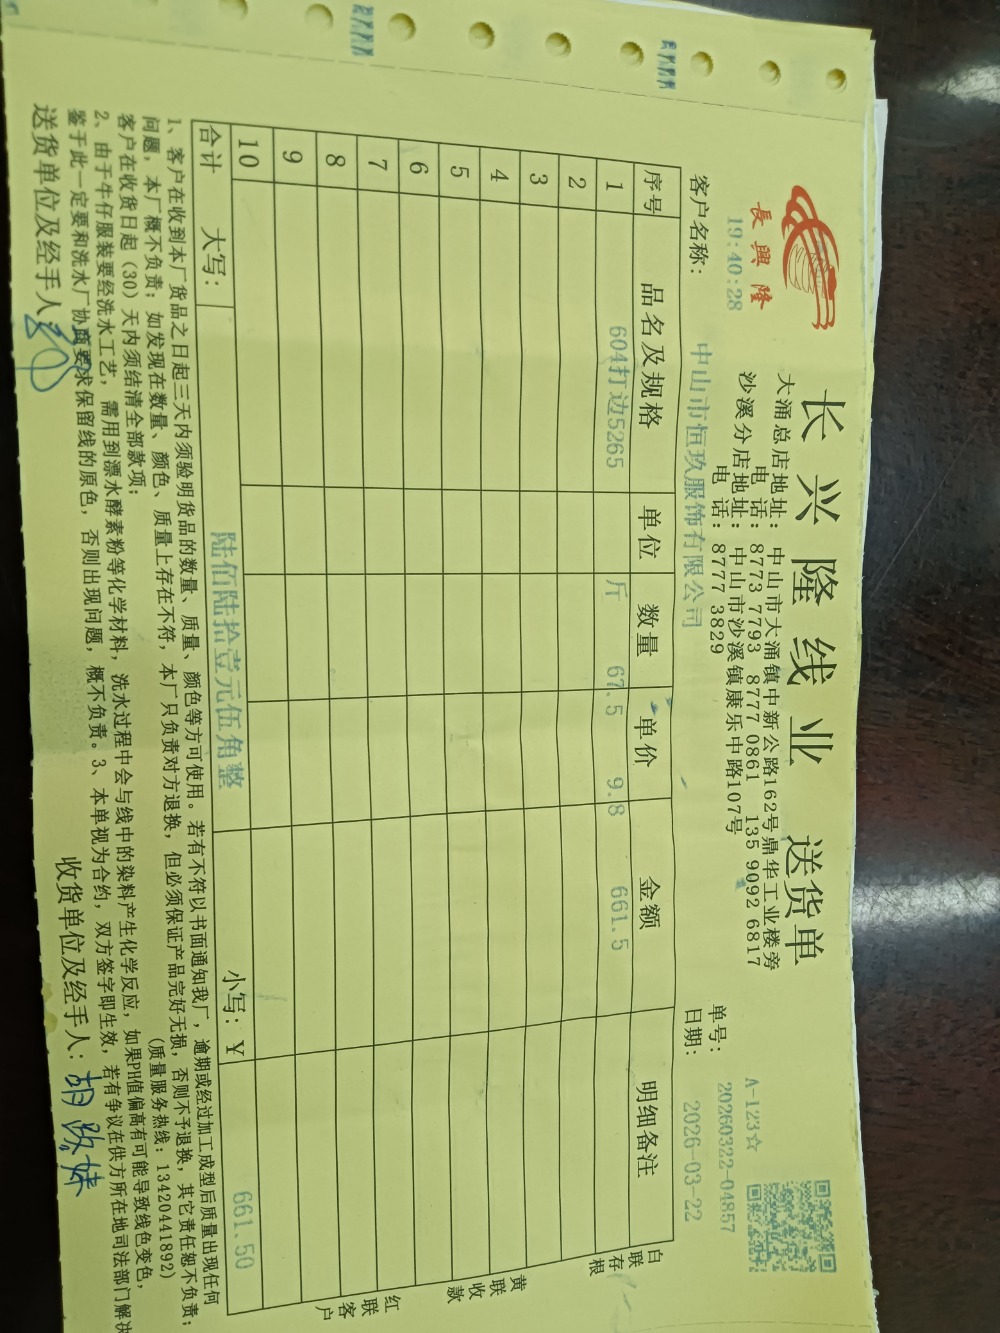 長興隆
19:40:28
长兴隆线业 送货单
大涌总店地址：中山市大涌镇中新公路162号鼎华工业楼旁
电 话：8773 7793 8777 0861 135 9092 6817
沙溪分店地址：中山市沙溪镇康乐中路107号
电 话：8777 3829
A-123☆
单号：20260322-04857
客户名称：中山市恒玖服饰有限公司
日期：2026-03-22
序号 品名及规格 单位 数量 单价 金额 明细备注
1 604打边5265 斤 67.5 9.8 661.5
2
3
4
5
6
7
8
9
10
合计 大写：陆佰陆拾壹元伍角整 小写：¥ 661.50
白联存根
黄联收款
红联客户
1、客户在收到本厂货品之日起三天内须验明货品的数量、质量、颜色等方可使用。若有不符以书面通知我厂，逾期或经过加工成型后质量出现任何
问题，本厂概不负责；如发现在数量、颜色、质量上存在不符，本厂只负责对方退换，但必须保证产品完好无损，否则不予退换，其它责任恕不负责；
客户在收货日起（30）天内须结清全部款项； （质量服务热线：13420441892）
2、由于牛仔服装要经洗水工艺，需用到漂水酵素粉等化学材料，洗水过程中会与线中的染料产生化学反应，如果PH值偏高有可能导致线色变色，
鉴于此一定要和洗水厂协商要求保留线的原色，否则出现问题，概不负责。3、本单视为合约，双方签字即生效，若有争议在供方所在地司法部门解决
送货单位及经手人： 收货单位及经手人：胡